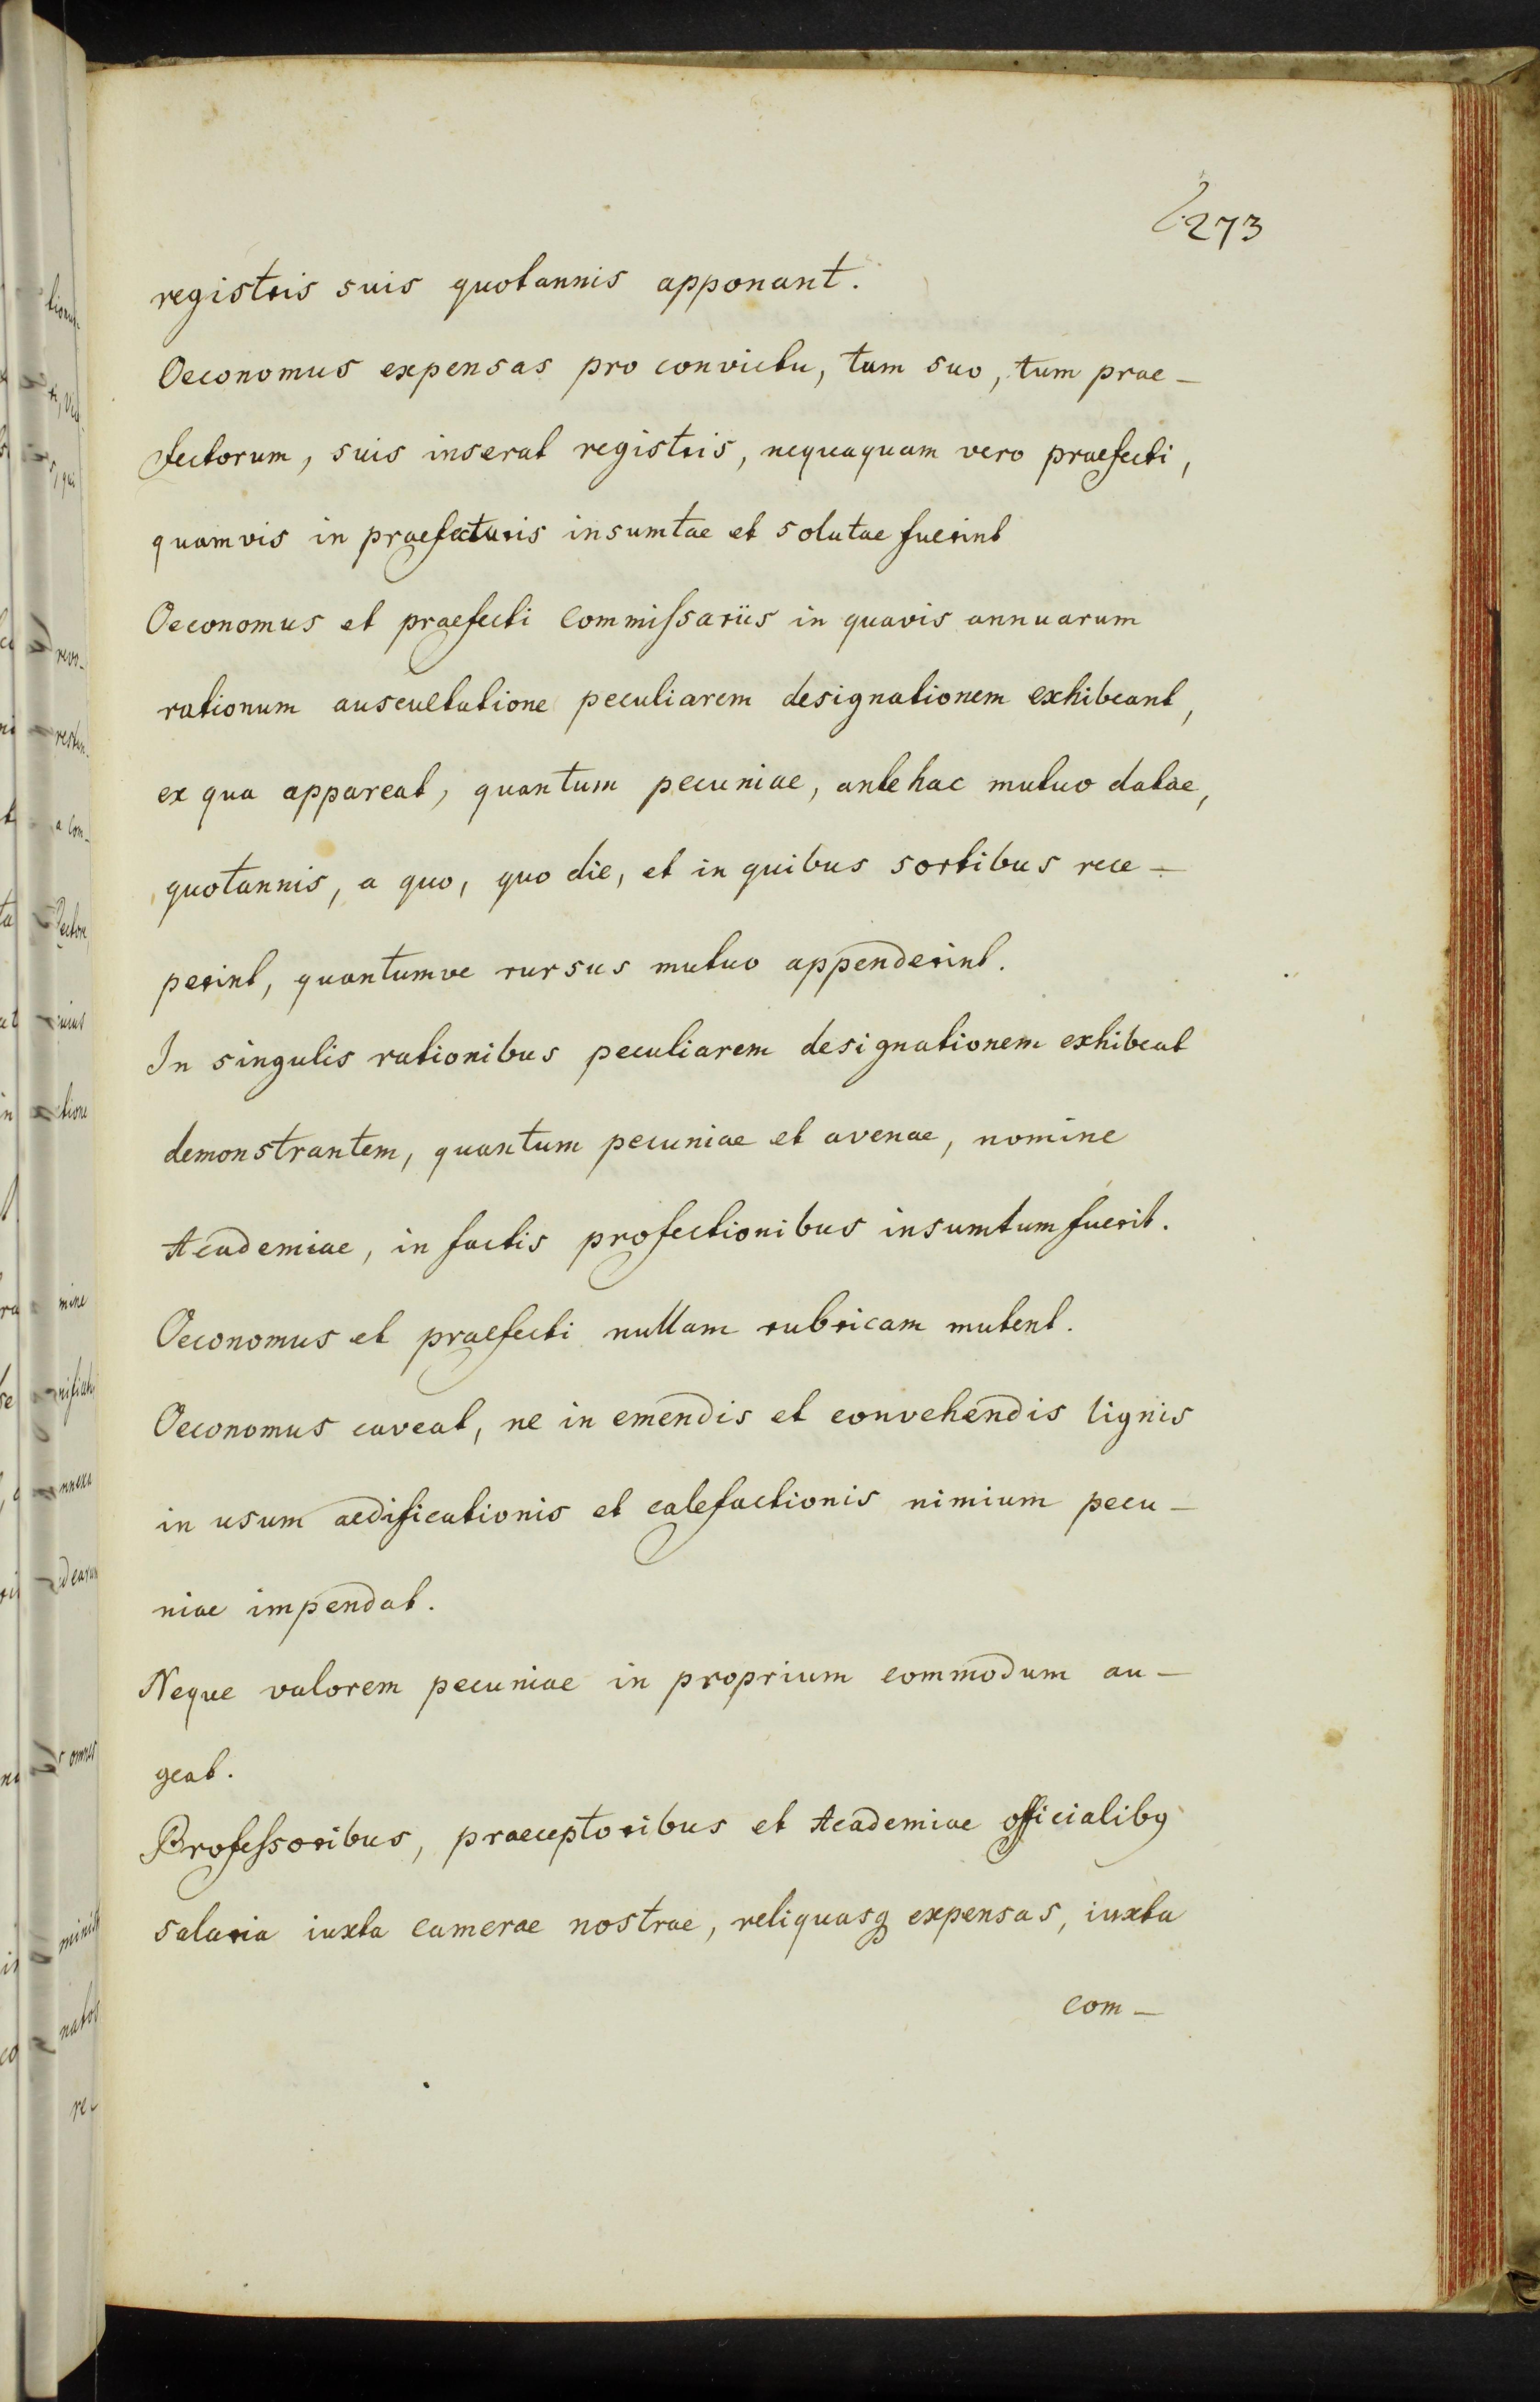 273
registris suis quotannis apponant.
Oeconomus expensas pro convictu, tam suo, tum prae-
fectorum, suis inserat registris, nequaquam vero praefecti,
quamvis in praefecturis insumtae et solutae fuerint
Oeconomus et praefecti commiſsariis in quavis annuarum
rationum auscultatione peculiarem designationem exhibeant,
ex qua appareat, quantum pecuniae, antehac mutuo datae,
quotannis, a quo, quo die, et in quibus sortibus rece-
perint, quantumve rursus mutuo appenderint.
In singulis rationibus peculiarem designationem exhibeat
demonstrantem, quantum pecuniae et avenae, nomine
Academiae, in factis profectionibus insumtum fuerit.
Oeconomus et praefecti nullam rubricam mutent.
Oeconomus caveat, ne in emendis et convehendis lignis
in usum aedificationis et calefactionis nimium pecu-
niae impendat.
Neque valorem pecuniae in proprium commodum au-
geat.
Profeſsoribus, praeceptoribus et Academiae officialibꝰ
salaria iuxta camerae nostrae, reliquasq expensas, iuxta
com-